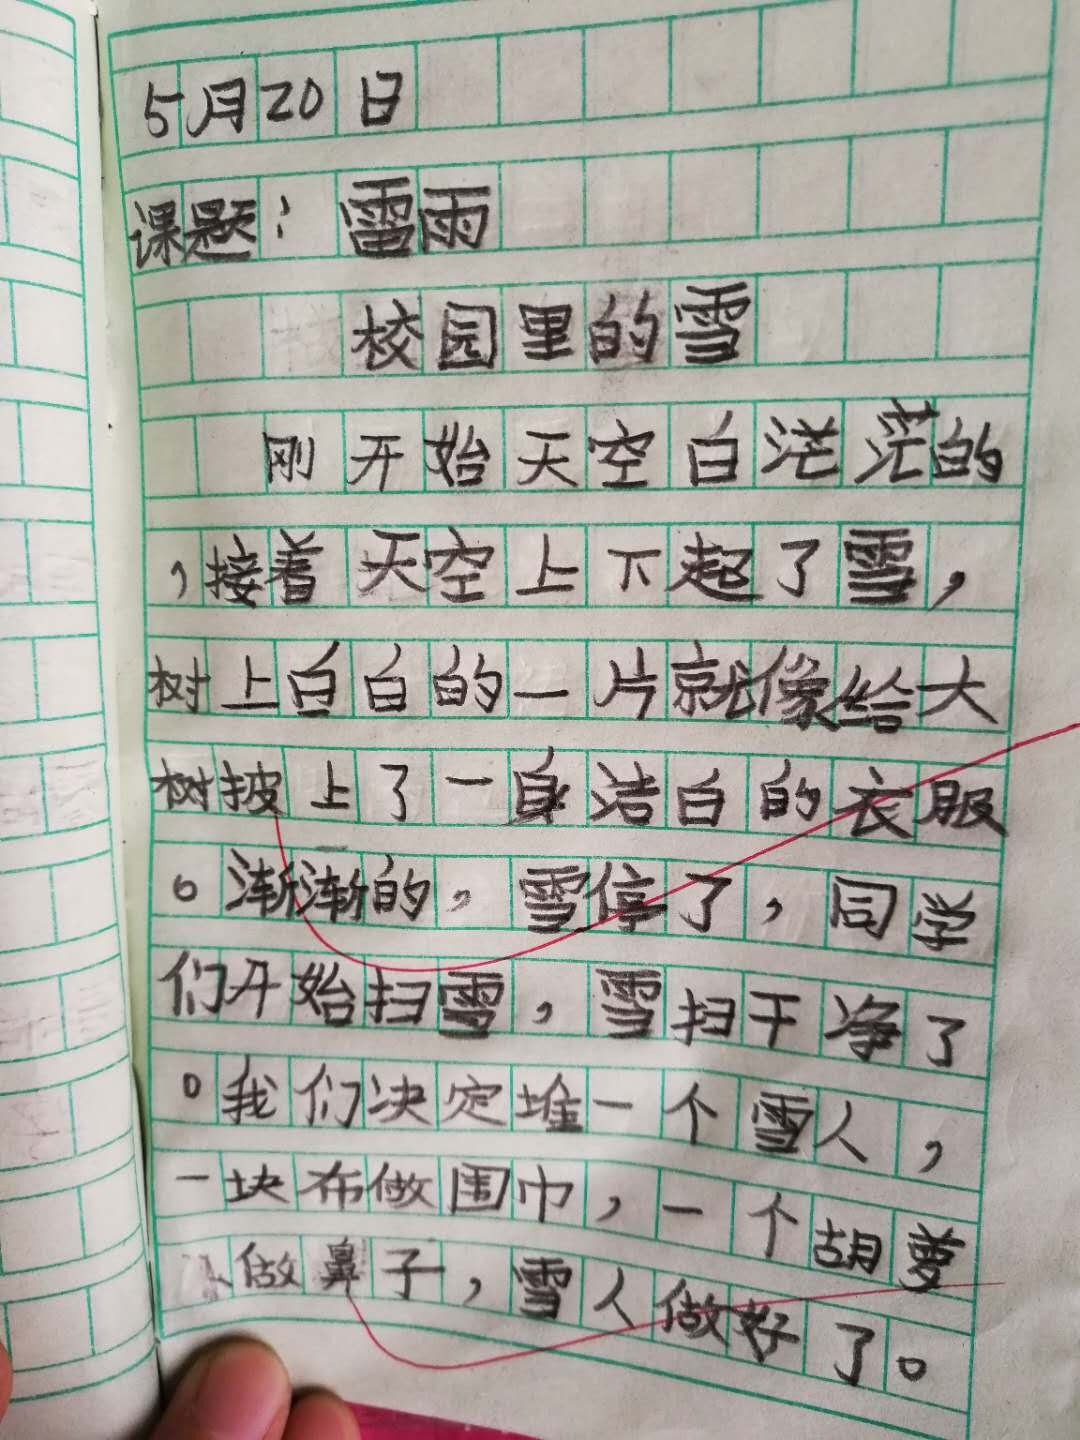 5月20日
课题：雷雨
校园里的雪
刚开始天空白茫茫的
，接着天空上下起了雪，
树上白白的一片就像给大
树披上了一身洁白的衣服
。渐渐的，雪停了，同学
们开始扫雪，雪扫干净了
。我们决定堆一个雪人，
一块布做围巾，一个胡萝
做鼻子，雪人做好了。